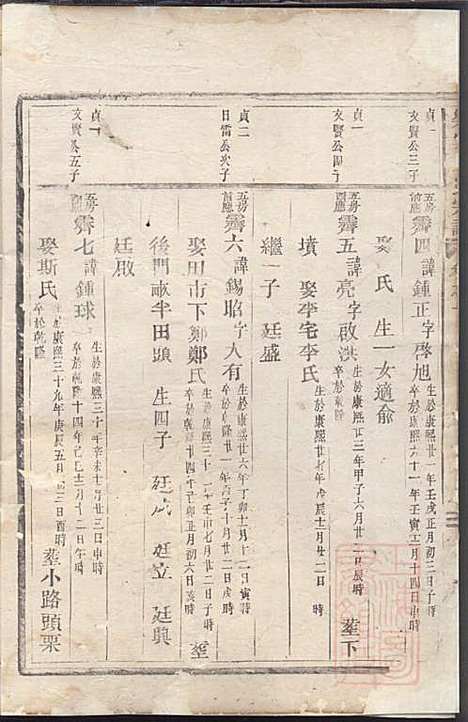 貞一
文賢公三子
五房霽四諱鍾正字啓旭 生於康熙廿一年壬戌正月初三日子時
卒於康熙六十一年壬寅三月十四日子時
娶 氏 生一女適俞
貞一
文賢公四子
五房霽五諱亮字啟洪 生於康熙廿三年甲子六月廿二日辰時
卒於乾隆 葬下
墳 娶李宅李氏 生於康熙廿七年戊辰十一月廿二日 時
繼一子 廷盛
貞二
日雷公次子
五房霽六諱錫昭字大有 生於康熙廿六年丁卯十一月十二日寅時
卒於乾隆廿一年丙子十月廿二日戌時
娶田市下鄭鄭氏 生於康熙三十一年壬申七月廿二日子時
卒於乾隆廿四年己卯正月初六日亥時 塟
後門畝半田頭 生四子 廷成 廷立 廷興
廷啟
貞一
文賢公五子
五房霽七諱鍾球 生於康熙三十年辛未十一月廿三日申時
卒於乾隆十四年己巳十二月十二日午時
娶斯氏 生於康熙三十九年庚辰五月 三日酉時
卒於乾隆 塟小路頭栗